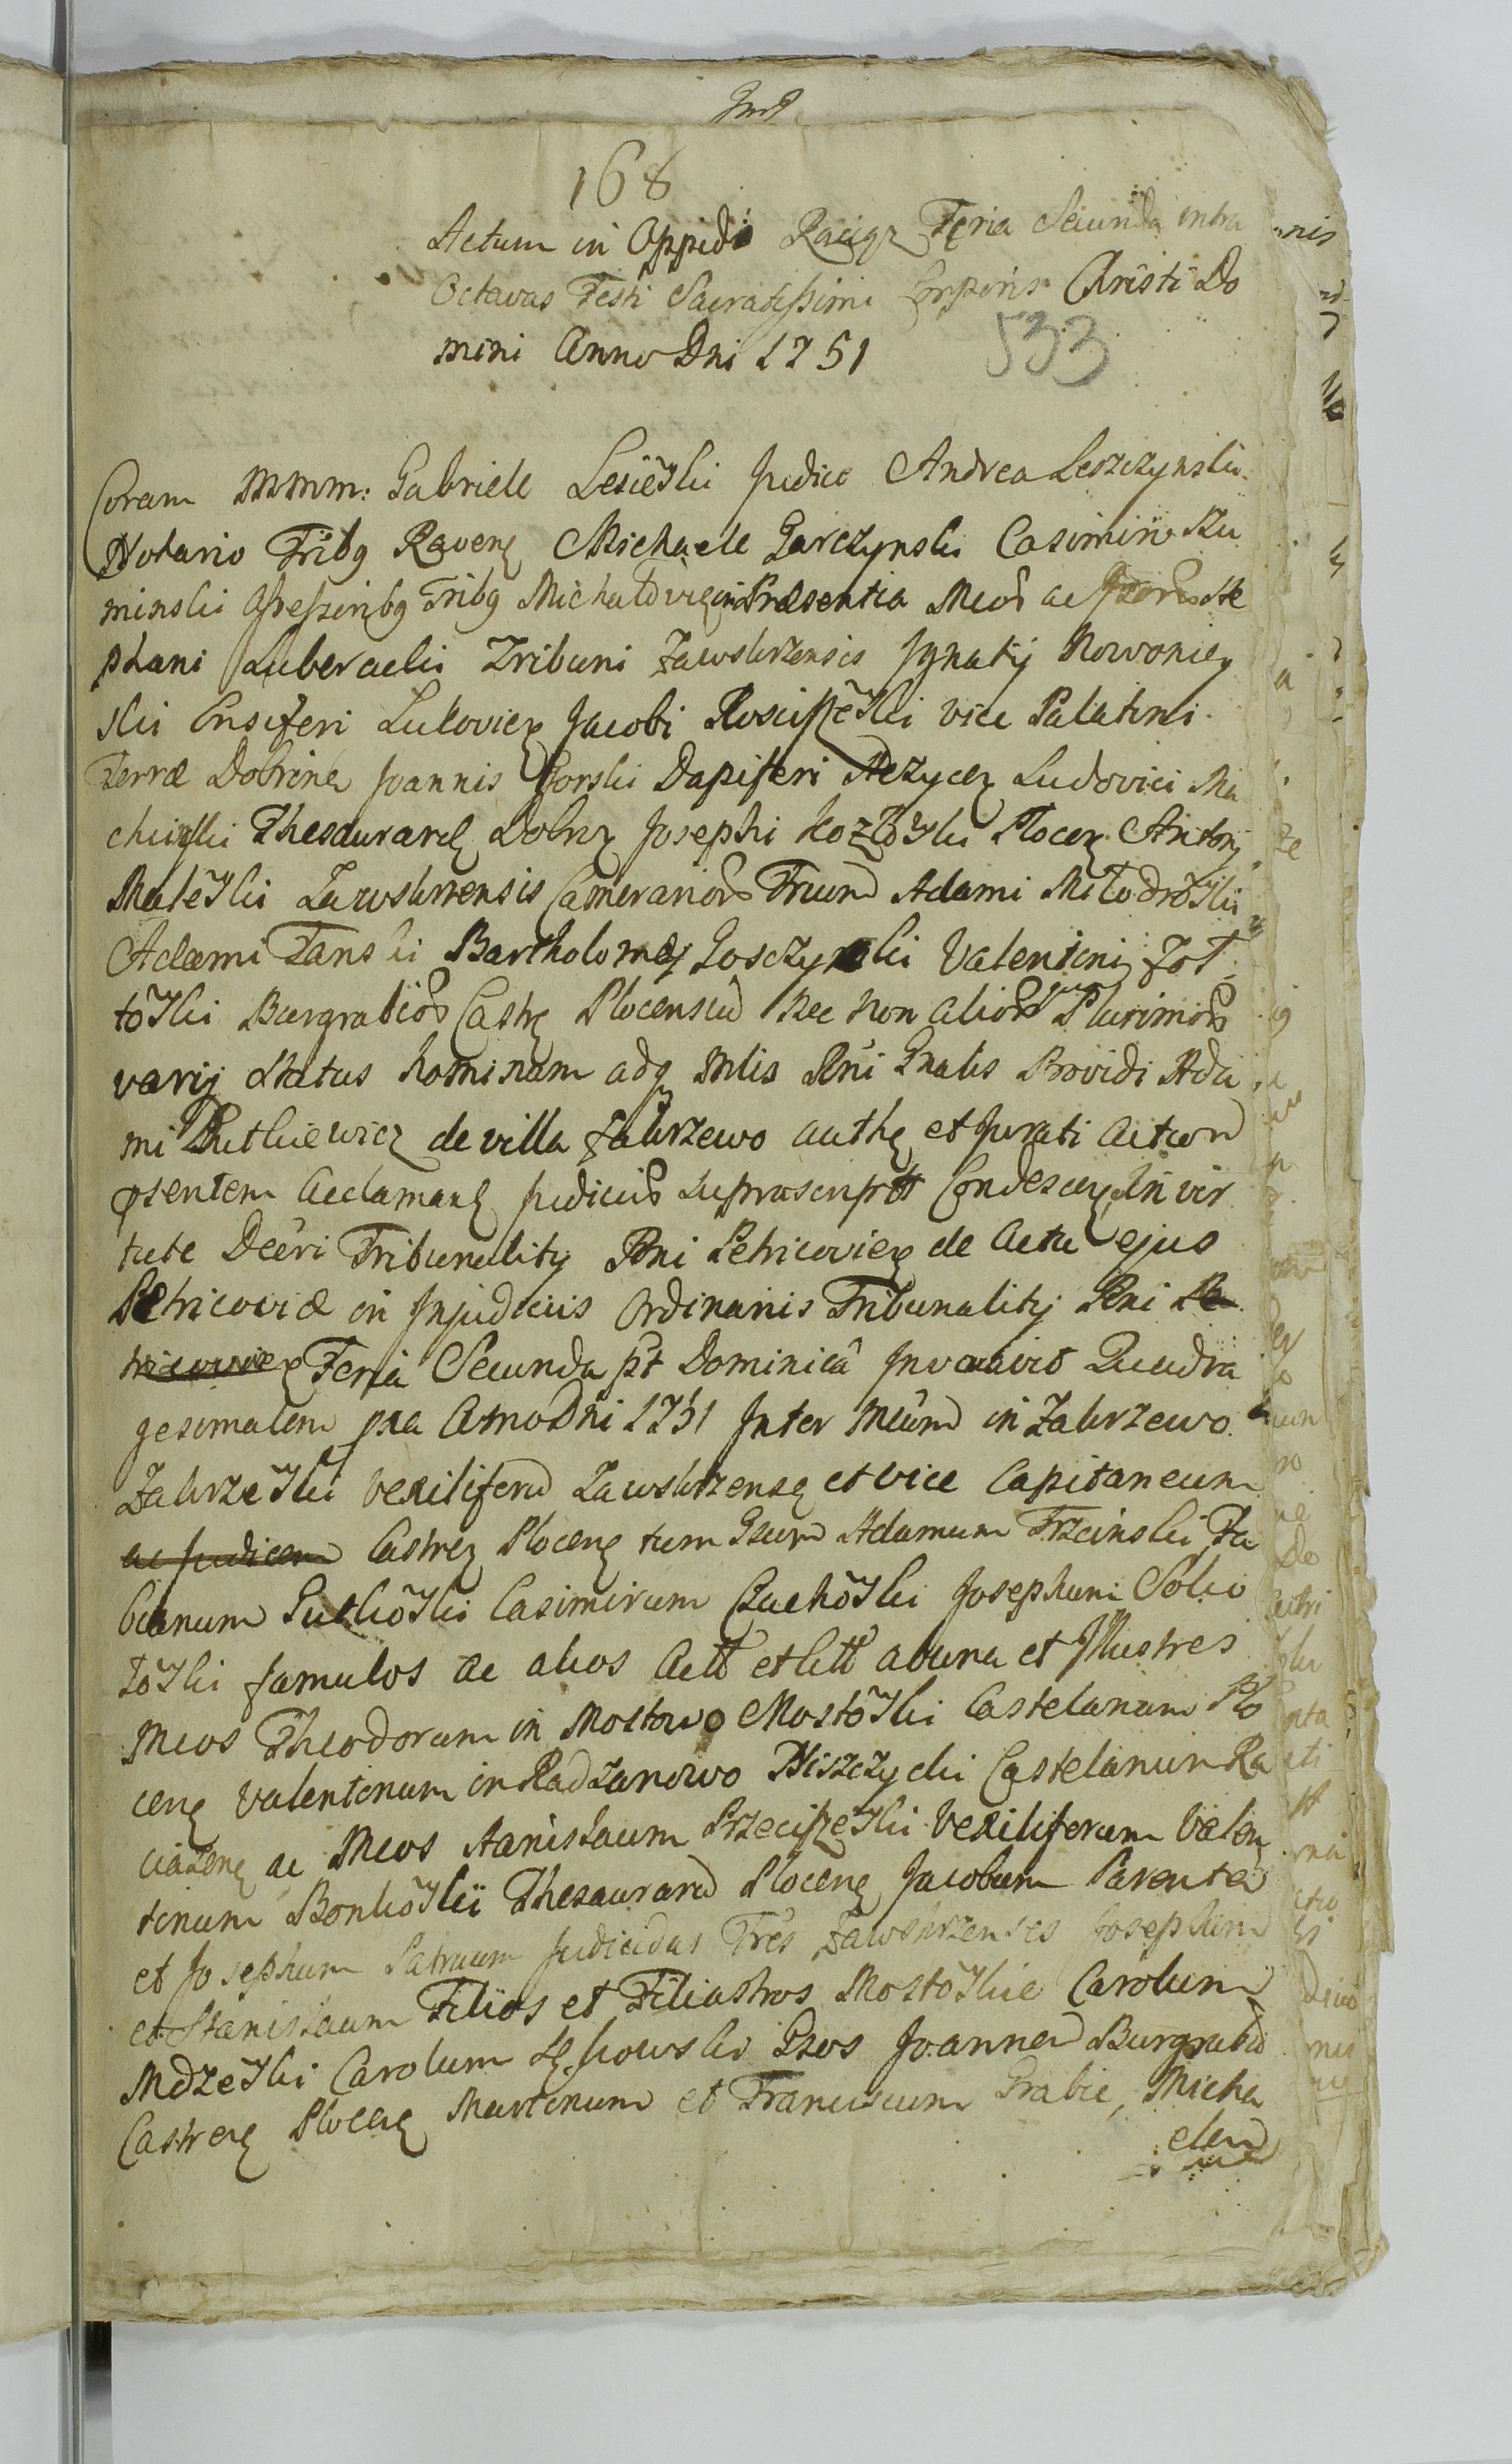 168
Actum in Oppido Raciąz Feria Secunda intra
Octavas Festi Sacratissimi Corporis Christi Do
mini Anno Dni 1751
533
Coram Mmm: Gabriele Lesieski Judice Andrea Leszczynski
Notario Tribq Ravenę Michaele Garczynski Casimiro Szu
minski Assessoribq Tribq Michałowien Præsentia Mcor ac Gsor Ste
phani Luberacki Tribuni Zawskrzensis Ignatij Nowowiey
ski Ensiferi Lukovien Jacobi Rosciszeski vice Palatini
Terræ Dobrinen Joannis Gorski Dapiferi Mezycen Ludovici Ma
chciński Thesaurarę Dobrz Josephi Kozłoski Plocen Antonj
Maleski Zawskrzensis Camerarior Trium Adami Miłodroski
Adami Tanski Bartholomej Gosczynski Valentini Zoł
toski Burgrabior Castrę Plocensiu Nec Non alior Plurimor
varij Status hominum adq Mlis Rni Gnalis Providi Ada
mi Rutkiewicz de villa Zakrzewo authę et Jurati Actum
psentem acclamanę Judiciu Suprascript Condescen. In vir
tute Decri Tribunality Rni Petricovien de Actu ejus
Petricoviæ in Judiciis Ordinariis Tribunality Rni Pe
tricovien Feria Secunda pt Dominica Invocavit Quadra
gesimalem pxa Anno Dni 1751 Inter Mcum in Zakrzewo
Zakrzeski Vexiliferu Zawskrzensę et vice Capitaneum
ac Judicem Castren Plocenę tum Gsum Adamum Trzcinski Fa
bianum Sutkoski Casimirum Czachoski Josephum Soko
łoski famulos ac alios Actt et Citt ab una et Illustres
Mcos Theodorum in Mostowo Mostoski Castelanum Plo
cenę Valentinum in Radzanowo Niszczycki Castelanum Ra
ciązenę ac Mcos Stanisłaum Przeciszeski Vexiliferum Valen
tinum Bonkoski Thesauraru Plocenę Jacobum Parente
et Josephum Patruum Judicidas Tres Zawskrzenses Josephum
et Stanisłaum Filios et Filiastros Mostoskie Carolum
Mdzeski Carolum Lękowski Gsos Joannem Burgrabiu
Castrenę Plocenę Martinum et Franciscum Grabie, Micha
elem